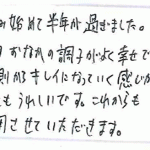 始めて半年が過ぎました。
おなかの調子がよく幸せで
側からキレイになっていく感じが
もうれしいです。これからも
させていただきます。